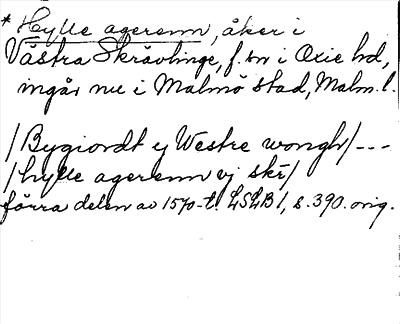 * Hylle agerenn, åker i
Västra Skrävlinge, f. sn i Oxie hd,
ingår nu i Malmö stad, Malm. l.
/Bygiordt ij Westre wongh/ ---
/hylle agerenn vj skr/
förra delen av 1570-t. LSLB 1, s. 390. orig.